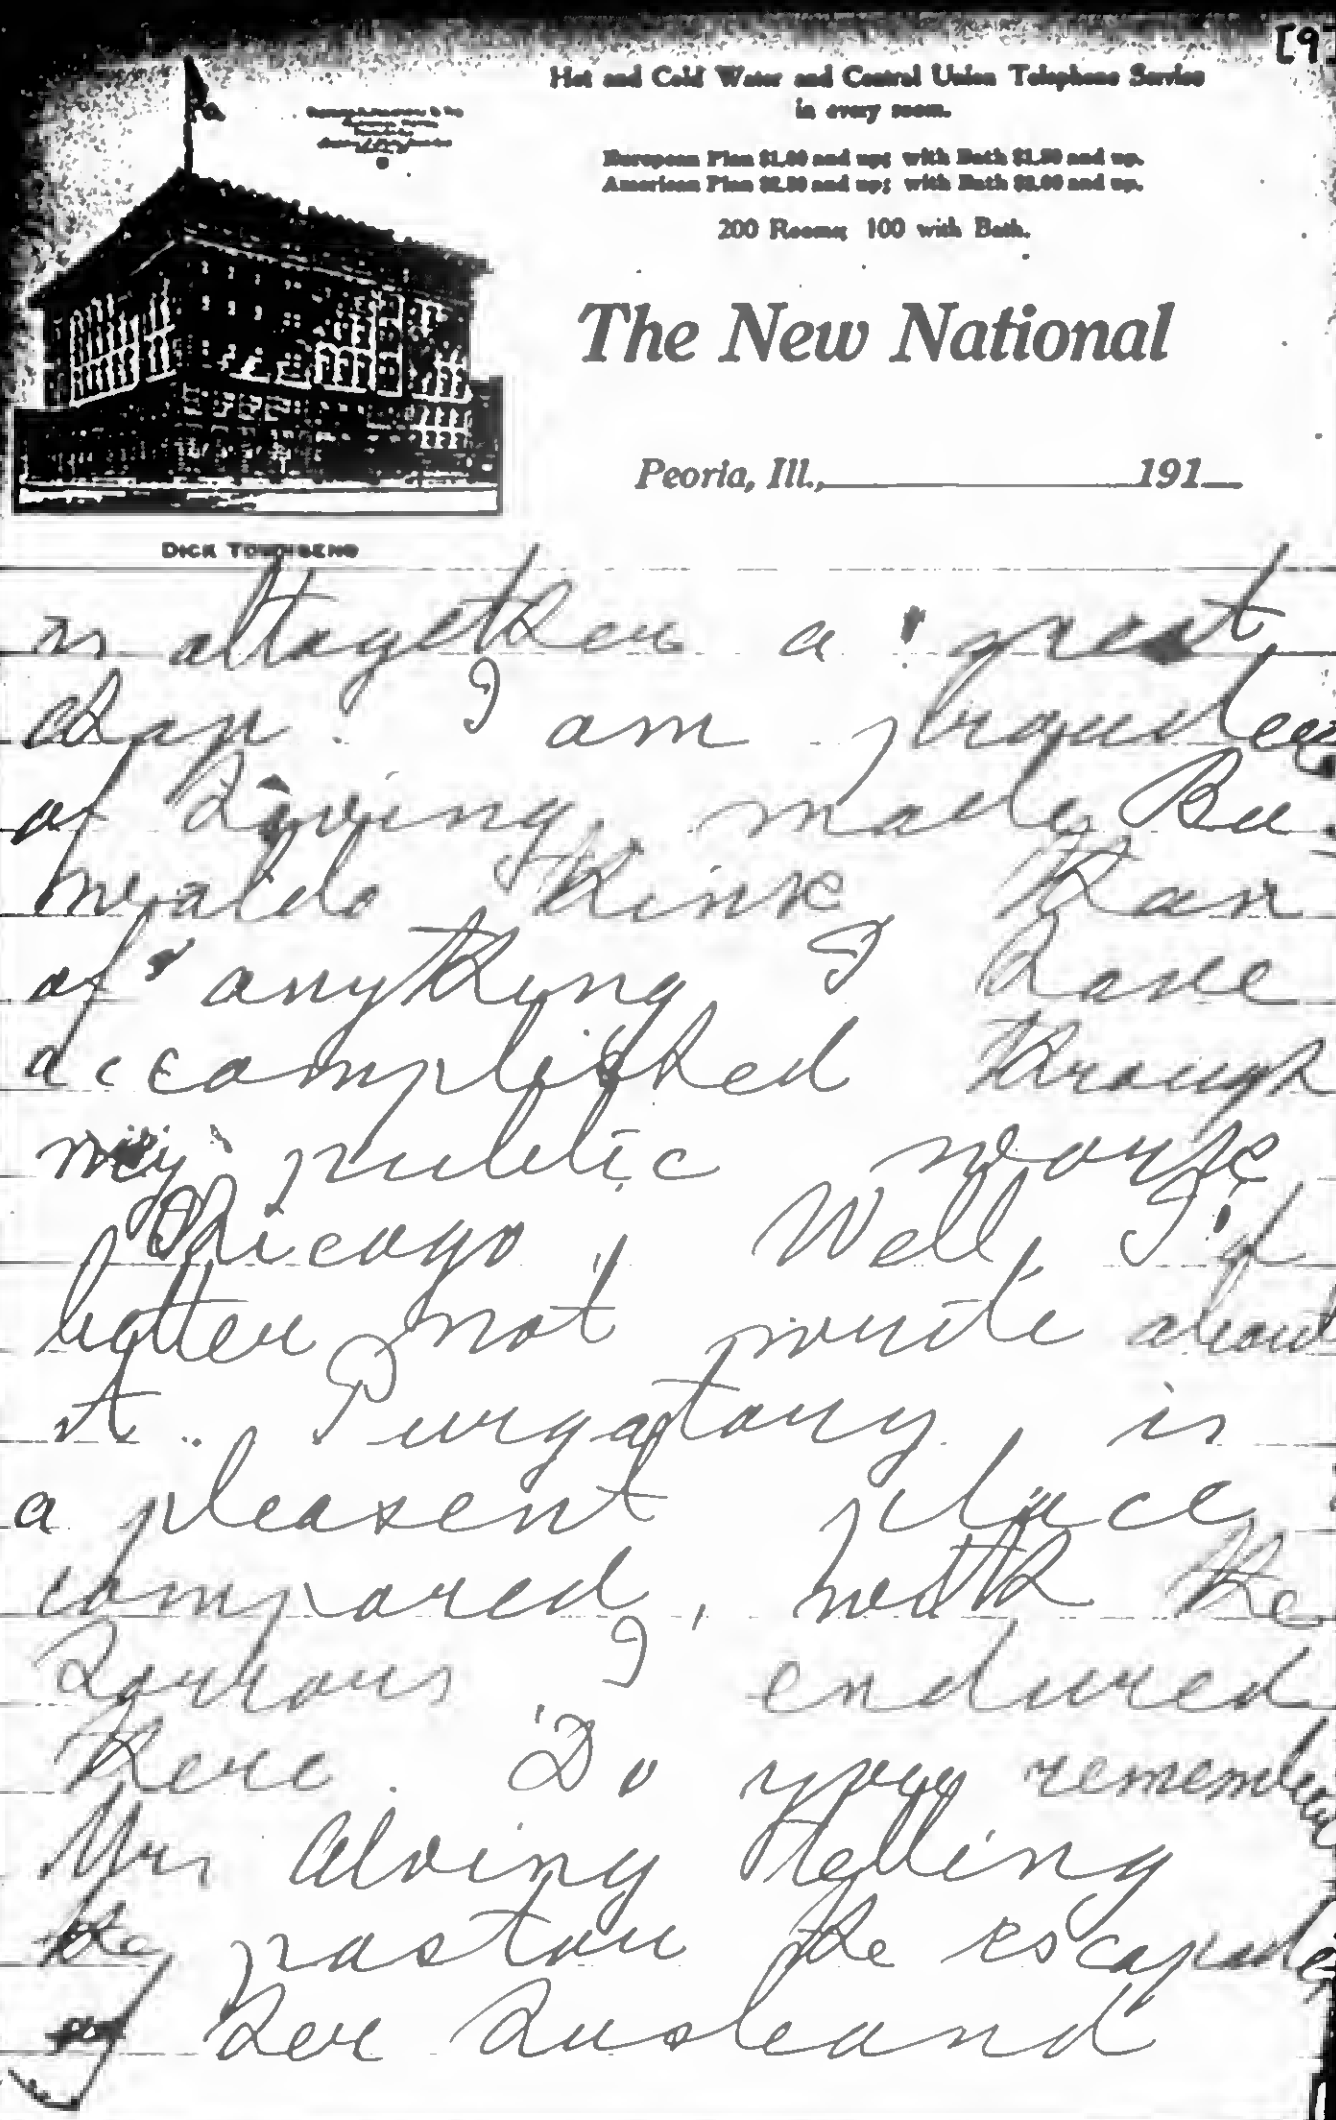 [9]
Hot and Cold Water and Central Union Telephone Service
in every room.
European Plan $1.00 and up; with Bath $1.50 and up.
American Plan $2.50 and up; with Bath $3.00 and up.
200 Rooms; 100 with Bath.
The New National
Peoria, Ill., 191
DICK TOWNSEND
is altogether a great
chap. I am prouder
of having made Bu
think than
of anything I have
accomplished through
my public work
Chicago, Well, I'd
better not write about
it. Purgatory is
a pleasent place
compared, with the
horrors I endured
there. Do you remember
Mrs Alving telling
the pastor the escapade
of her husband